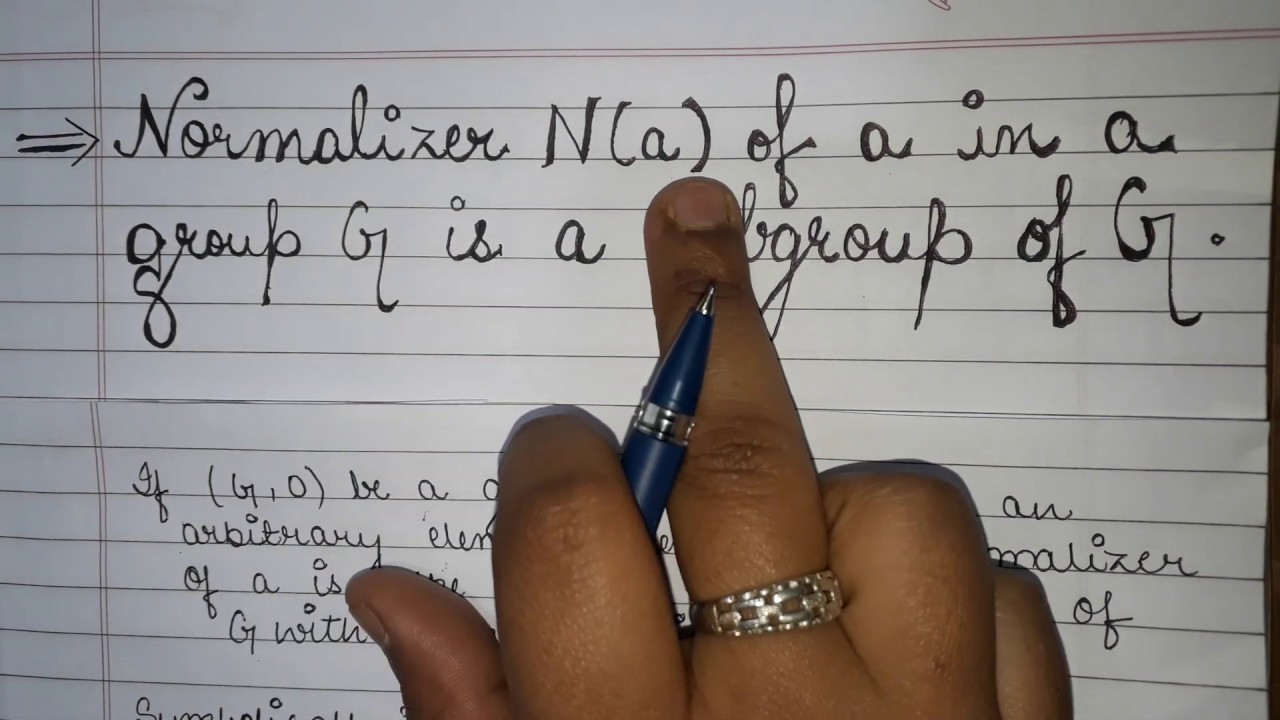 ⇒ Normalizer N(a) of a in a
group G is a bgroup of G.
If (G,0) be a an
arbitrary elem malizer
of a is
G with of
Symbolicall